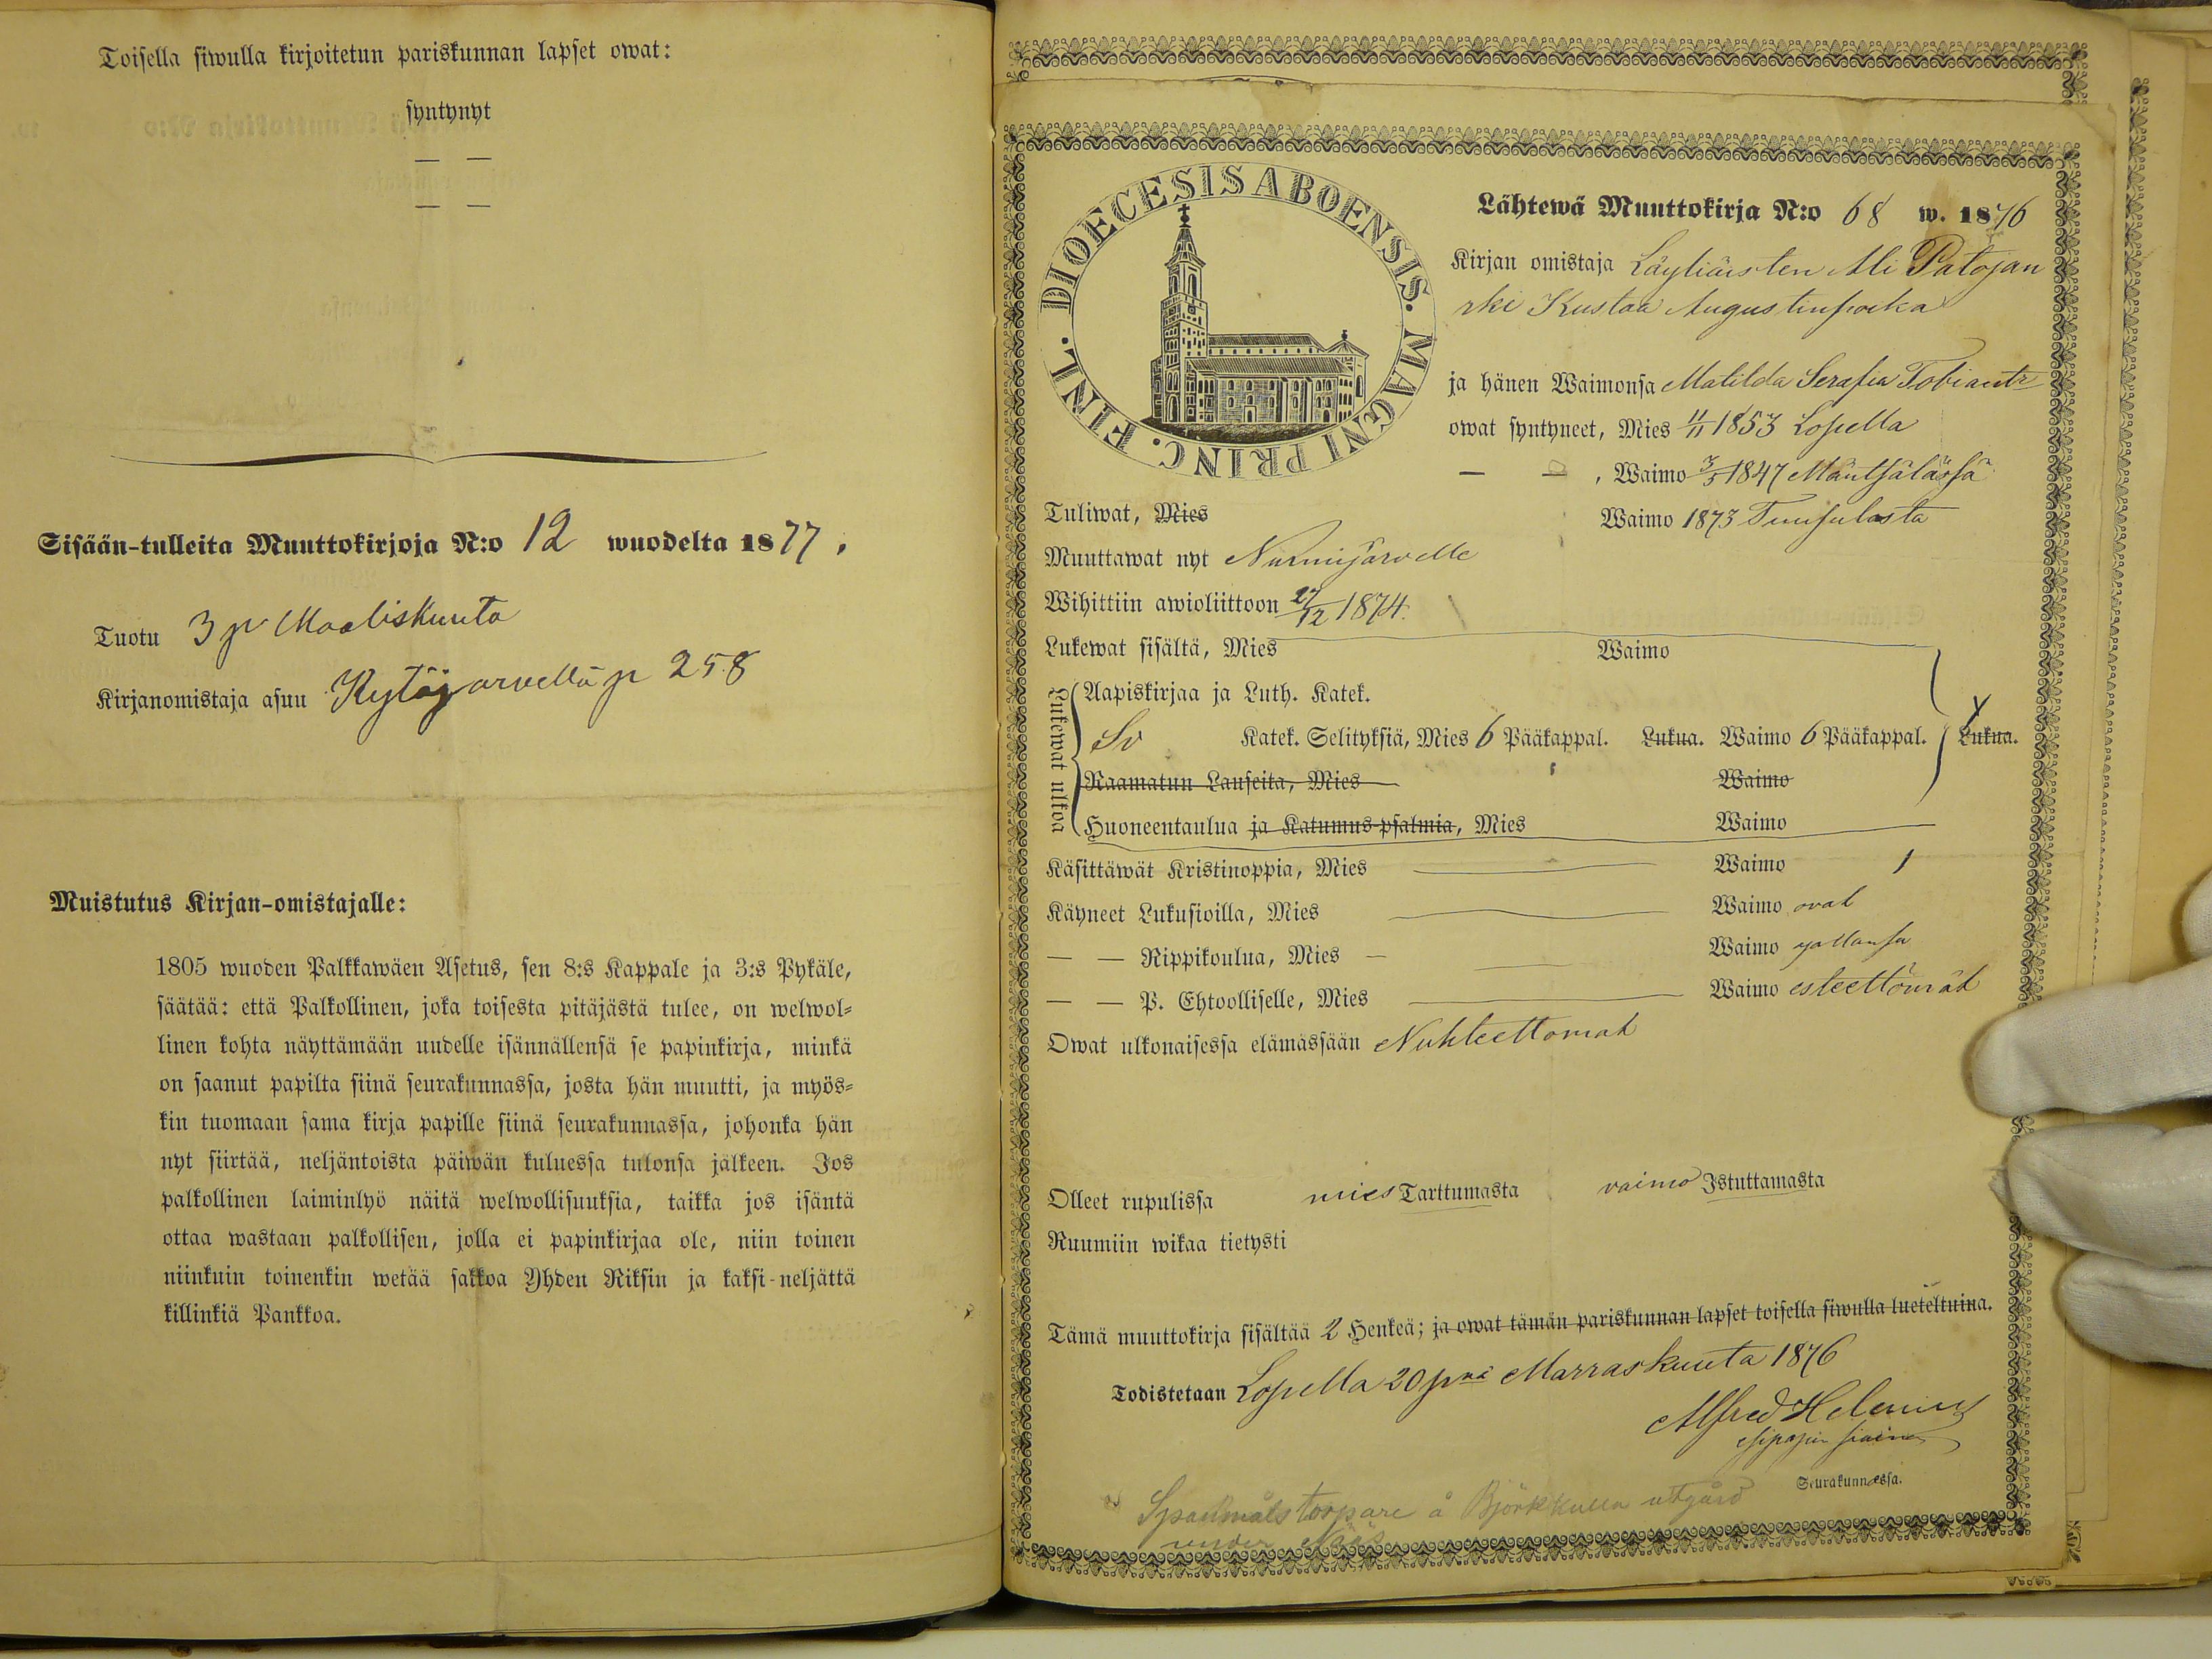 Toisella siwulla kirjoitetun pariskunnan lapset owat:
syntynyt
— —
— —
Sisään-tulleita Muuttokirjoja N:o 12 wuodelta 1877.
Tuotu 3 p Maaliskuuta
Kirjanomistaja asuu Kytäjärvellä p 258
Muistutus Kirjan-omistajalle:
1805 wuoden Palkkawäen Asetus, sen 8:s Kappale ja 3:s Pykäle,
säätää: että Palkollinen, joka toisesta pitäjästä tulee, on welwol-
linen kohta näyttämään uudelle isännällensä se papinkirja, minkä
on saanut papilta siinä seurakunnassa, josta hän muutti, ja myös-
kin tuomaan sama kirja papille siinä seurakunnassa, johonka hän
nyt siirtää, neljäntoista päiwän kuluessa tulonsa jälkeen. Jos
palkollinen laiminlyö näitä welwollisuuksia, taikka jos isäntä
ottaa wastaan palkollisen, jolla ei papinkirjaa ole, niin toinen
niinkuin toinenkin wetää sakkoa Yhden Riksin ja kaksi-neljättä
killinkiä Pankkoa.
DIOECESIS ABOENSIS. MAGNI PRINC. FINL.
Lähtewä Muuttokirja N:o 68 w. 1876
Kirjan omistaja Läyliäisten Ali Patojan
rki Kustaa Augustinpoika
ja hänen Waimonsa Matilda Serafia Tobiantr
owat syntyneet, Mies 11/11 1853 Lopella
— — , Waimo 3/3 1847 Mäntsälässä
Tuliwat, Mies Waimo 1873 Tuusulasta
Muuttawat nyt Nurmijärvelle
Wihittiin awioliittoon 27/12 1874.
Lukewat sisältä, Mies Waimo
Lukewat ulkoa
Aapiskirjaa ja Luth. Katek.
Sv Katek. Selityksiä, Mies 6 Pääkappal. Lukua. Waimo 6 Pääkappal. Lukua.
Raamatun Lauseita, Mies Waimo
Huoneentaulua ja Katumus-psalmia, Mies Waimo
Käsittäwät Kristinoppia, Mies Waimo 1
Käyneet Lukusioilla, Mies Waimo ovat
— — Rippikoulua, Mies — Waimo
— — P. Ehtoolliselle, Mies Waimo esteettömät
Owat ulkonaisessa elämässään Nuhteettomat
Olleet rupulissa mies Tarttumasta vaimo Istuttamasta
Ruumiin wikaa tietysti
Tämä muuttokirja sisältää 2 Henkeä; ja owat tämän pariskunnan lapset toisella siwulla lueteltuina.
Todistetaan Lopella 20 pnä Marraskuuta 1876
Alfred Helenius
Seurakunnassa.
torpare å Björkkulla utgård
under Näs